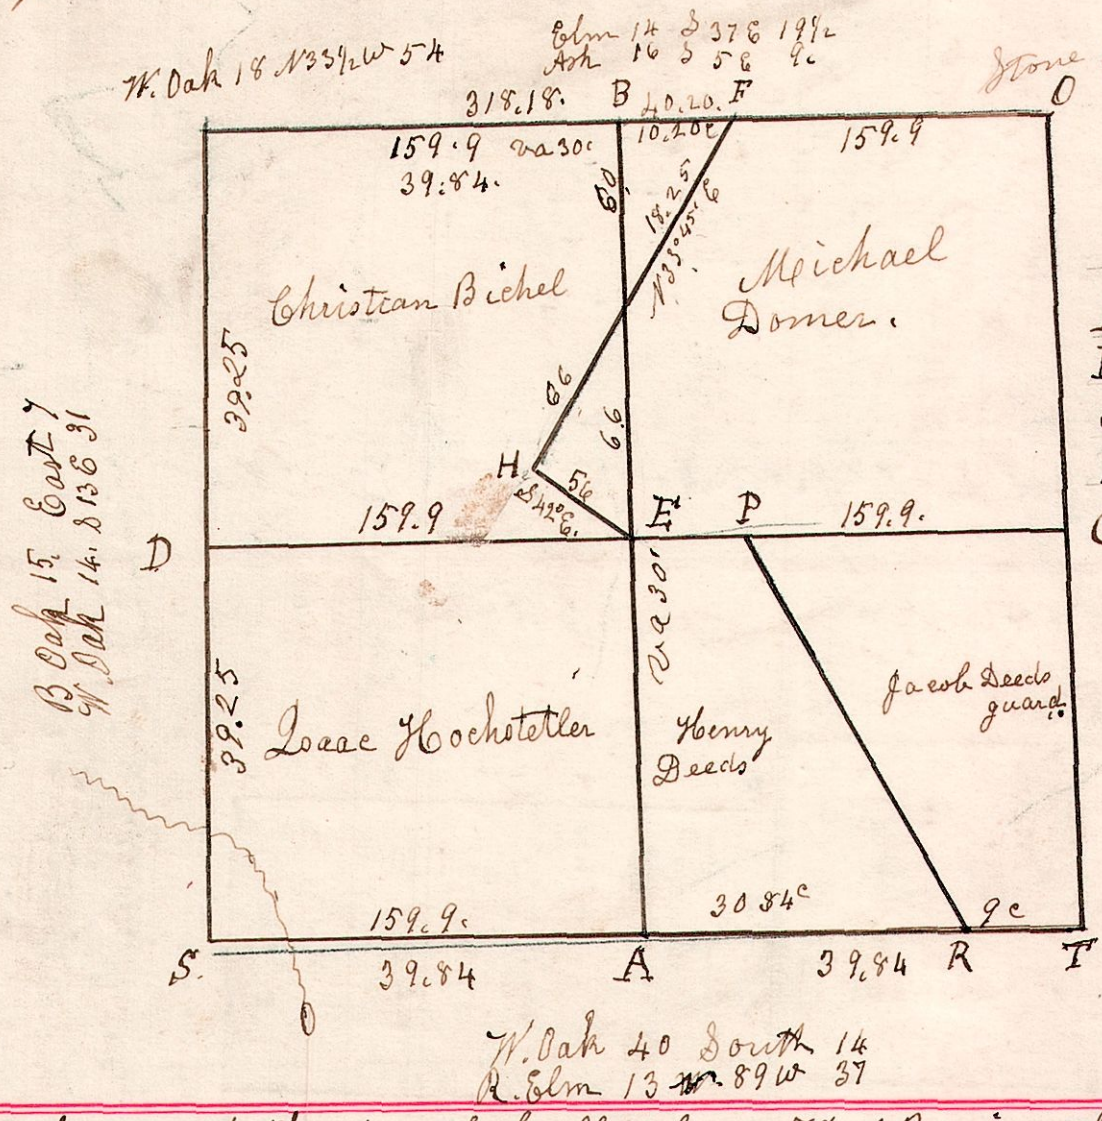 Elm 14 S 37 E 19 1/2
Ash 16 S 5 E 9c
W. Oak 18 N 33 1/2 W 54
Stone
318.18.
B
40.20.
F
O
159.9 va 30.
39.84.
10.20c
159.9
60
18.25
N 33° 45' E
Christian Bichel
Michael
Domer.
39.25
66
66
H
56
S 42° E.
159.9
E
P
159.9.
D
B Oak 15. East 7
W. Oak 14. S 13 E 31
va 30'
39.25
Isaac Hochstetler
Henry
Deeds
Jacob Deeds
guard.
159.9.
30 84c
9c
S.
39.84
A
39.84
R
T
W. Oak 40 South 14
R. Elm 13 89 W 37